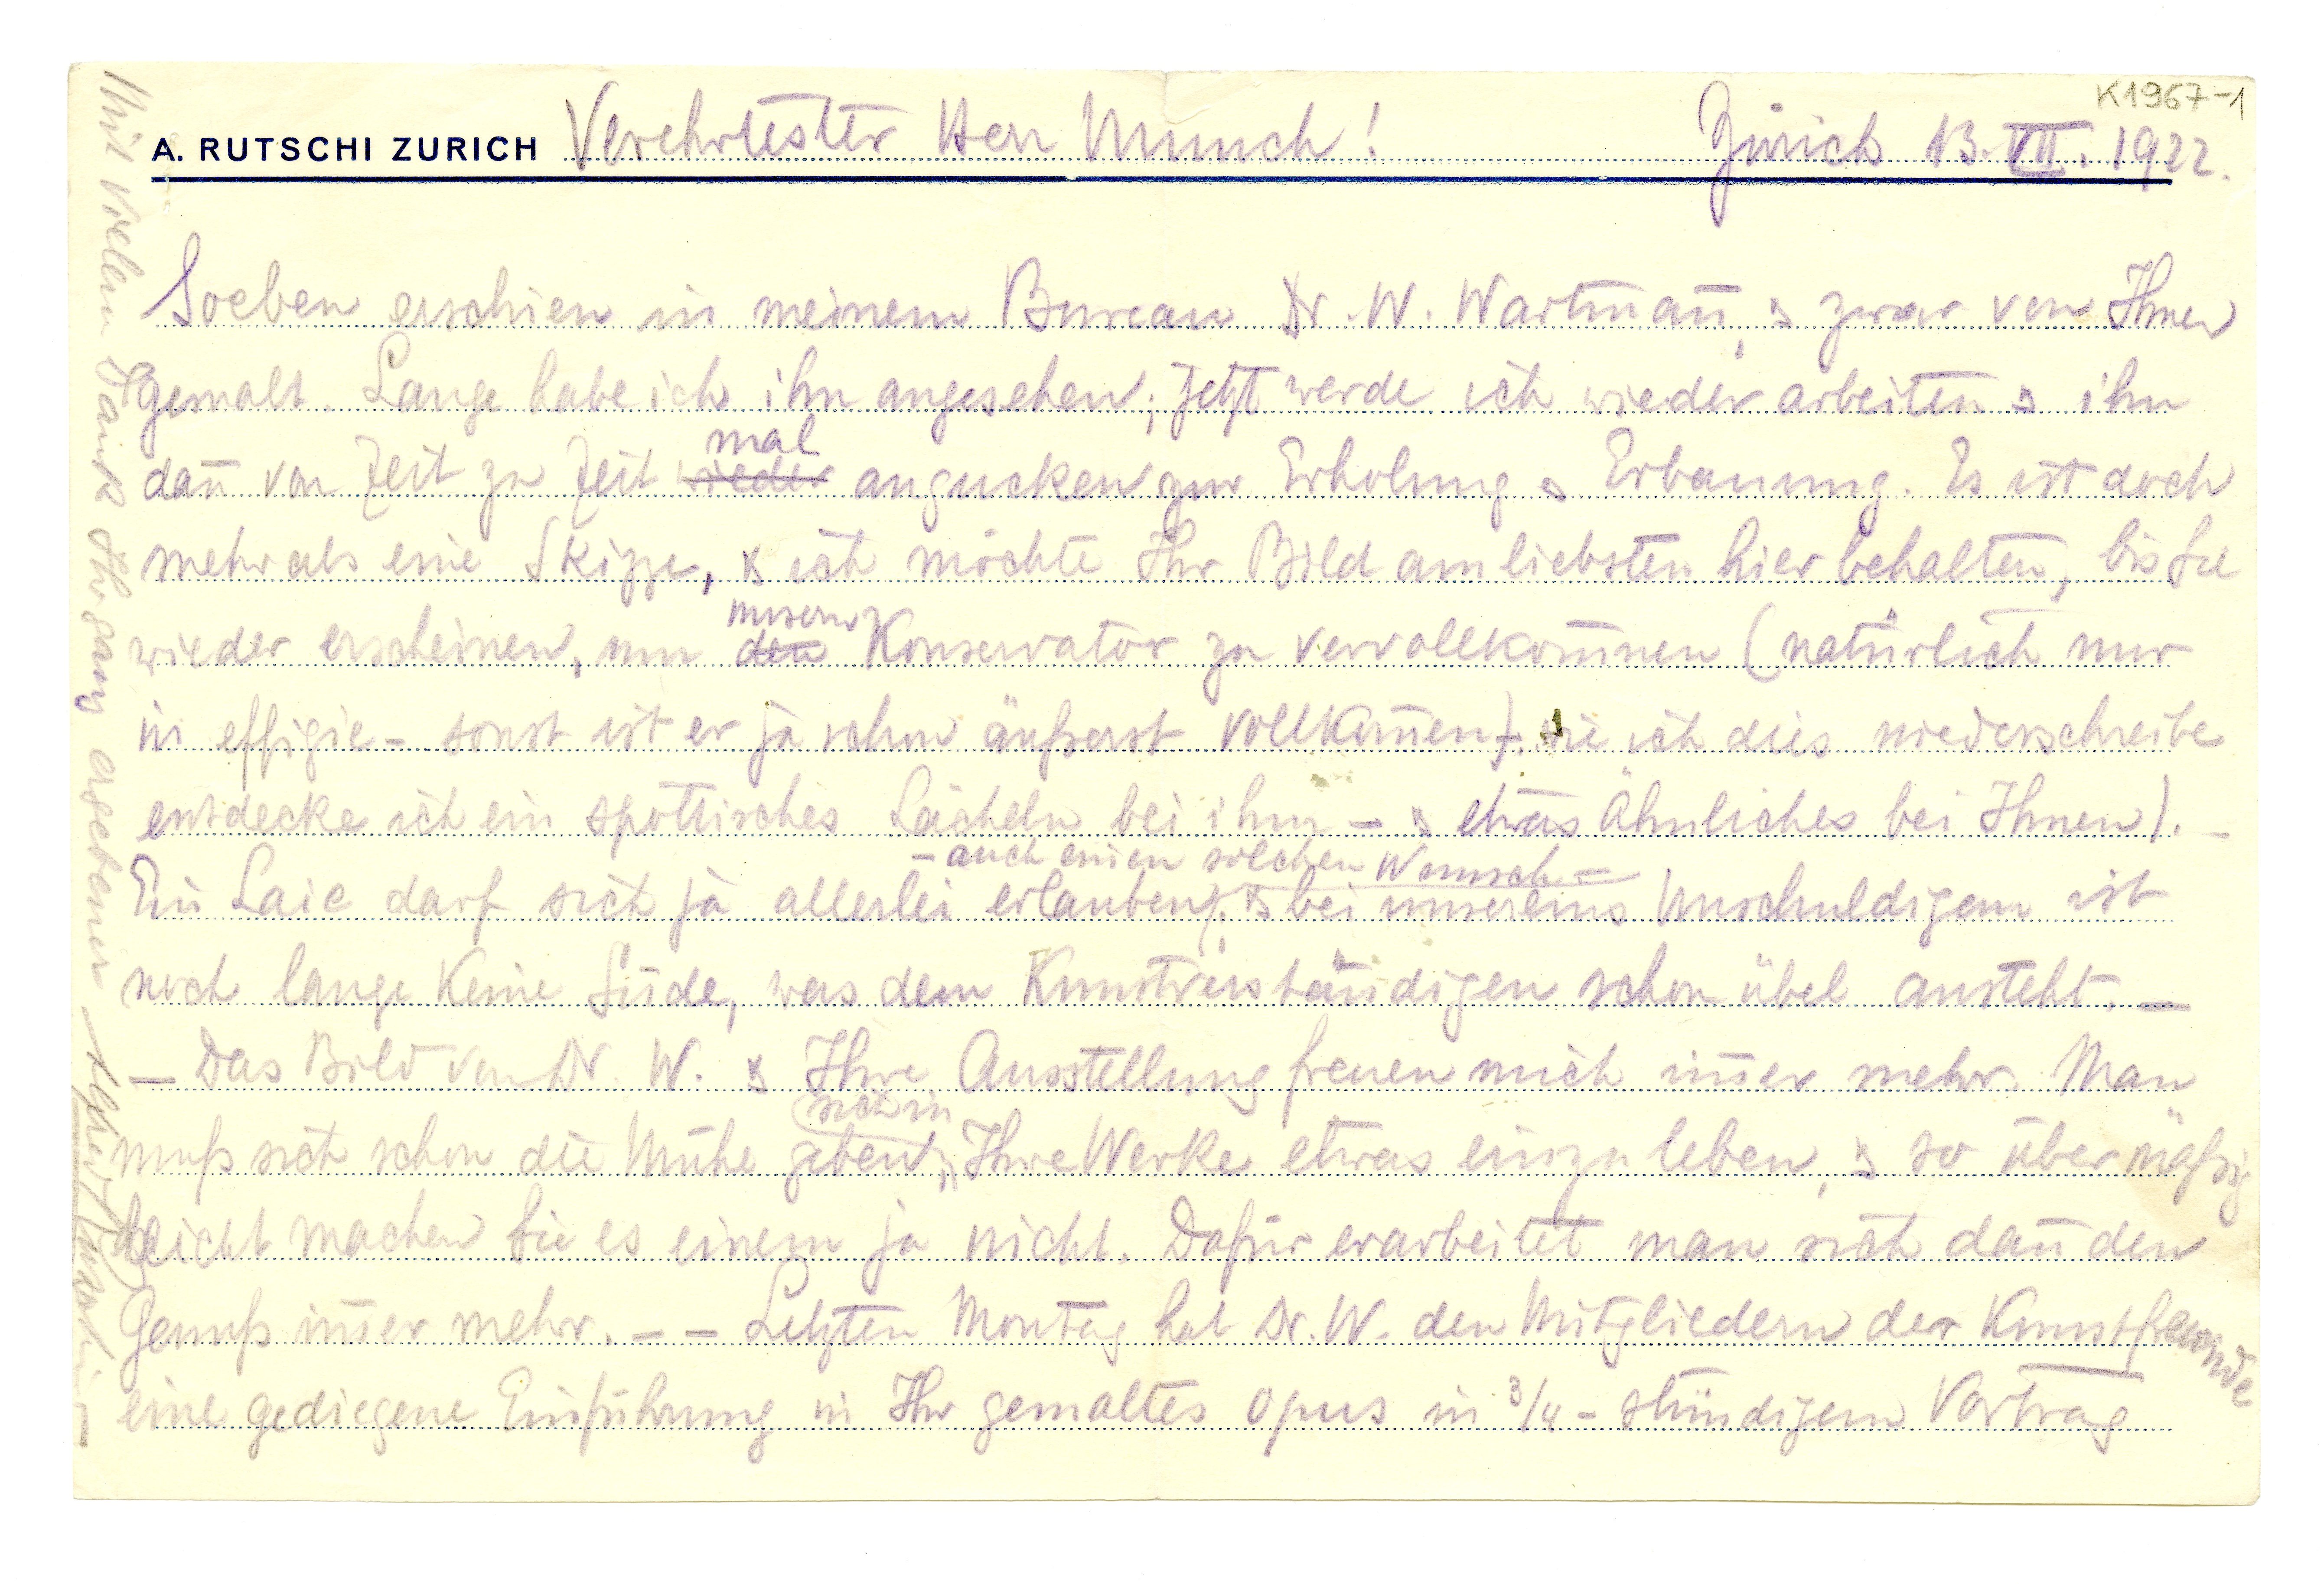 K1967-1
A. RUTSCHI ZURICH Verehrtester Herr Munch! Zürich 13. VII. 1922.
Soeben erschien in meinem Bureau Dr. W. Wartman̄, & zwar von Ihnen
gemalt. Lange habe ich ihn angesehen; jetzt werde ich wieder arbeiten & ihn
mal
dan̄ von Zeit zu Zeit wieder angucken zur Erholung & Erbauung. Es ist doch
mehr als eine Skizze, & ich möchte Ihr Bild am liebsten hier behalten, bis Sie
unsern
wieder erscheinen, um den Konservator zu vervollkom̄nen (natürlich nur
in effigie - sonst ist er ja schon äußerst vollkom̄en). wie ich dies niederschreibe
entdecke ich ein spöttisches Lächeln bei ihm - & etwas Ähnliches bei Ihnen). -
- auch einen solchen Wunsch -
Ein Laie darf sich ja allerlei erlauben, & bei unsereins Unschuldigem ist
noch lange keine Sünde, was dem Kunstverständigen schon übel ansteht. -
- Das Bild von Dr. W. & Ihre Ausstellung freuen mich im̄er mehr. Man
sich in
muß sich schon die Mühe geben, Ihre Werke etwas einzuleben, & so übermäßig
leicht machen Sie es einem ja nicht. Dafür erarbeitet man sich dan̄ den
Genuß im̄er mehr. - - Letzten Montag hat Dr. W. den Mitgliedern der Kunstfreunde
eine gediegene Einführung in Ihr gemaltes opus in 3/4-stündigem Vortrag
Mit vielem Dank Ihr ganz ergebener Alfred Rütschi